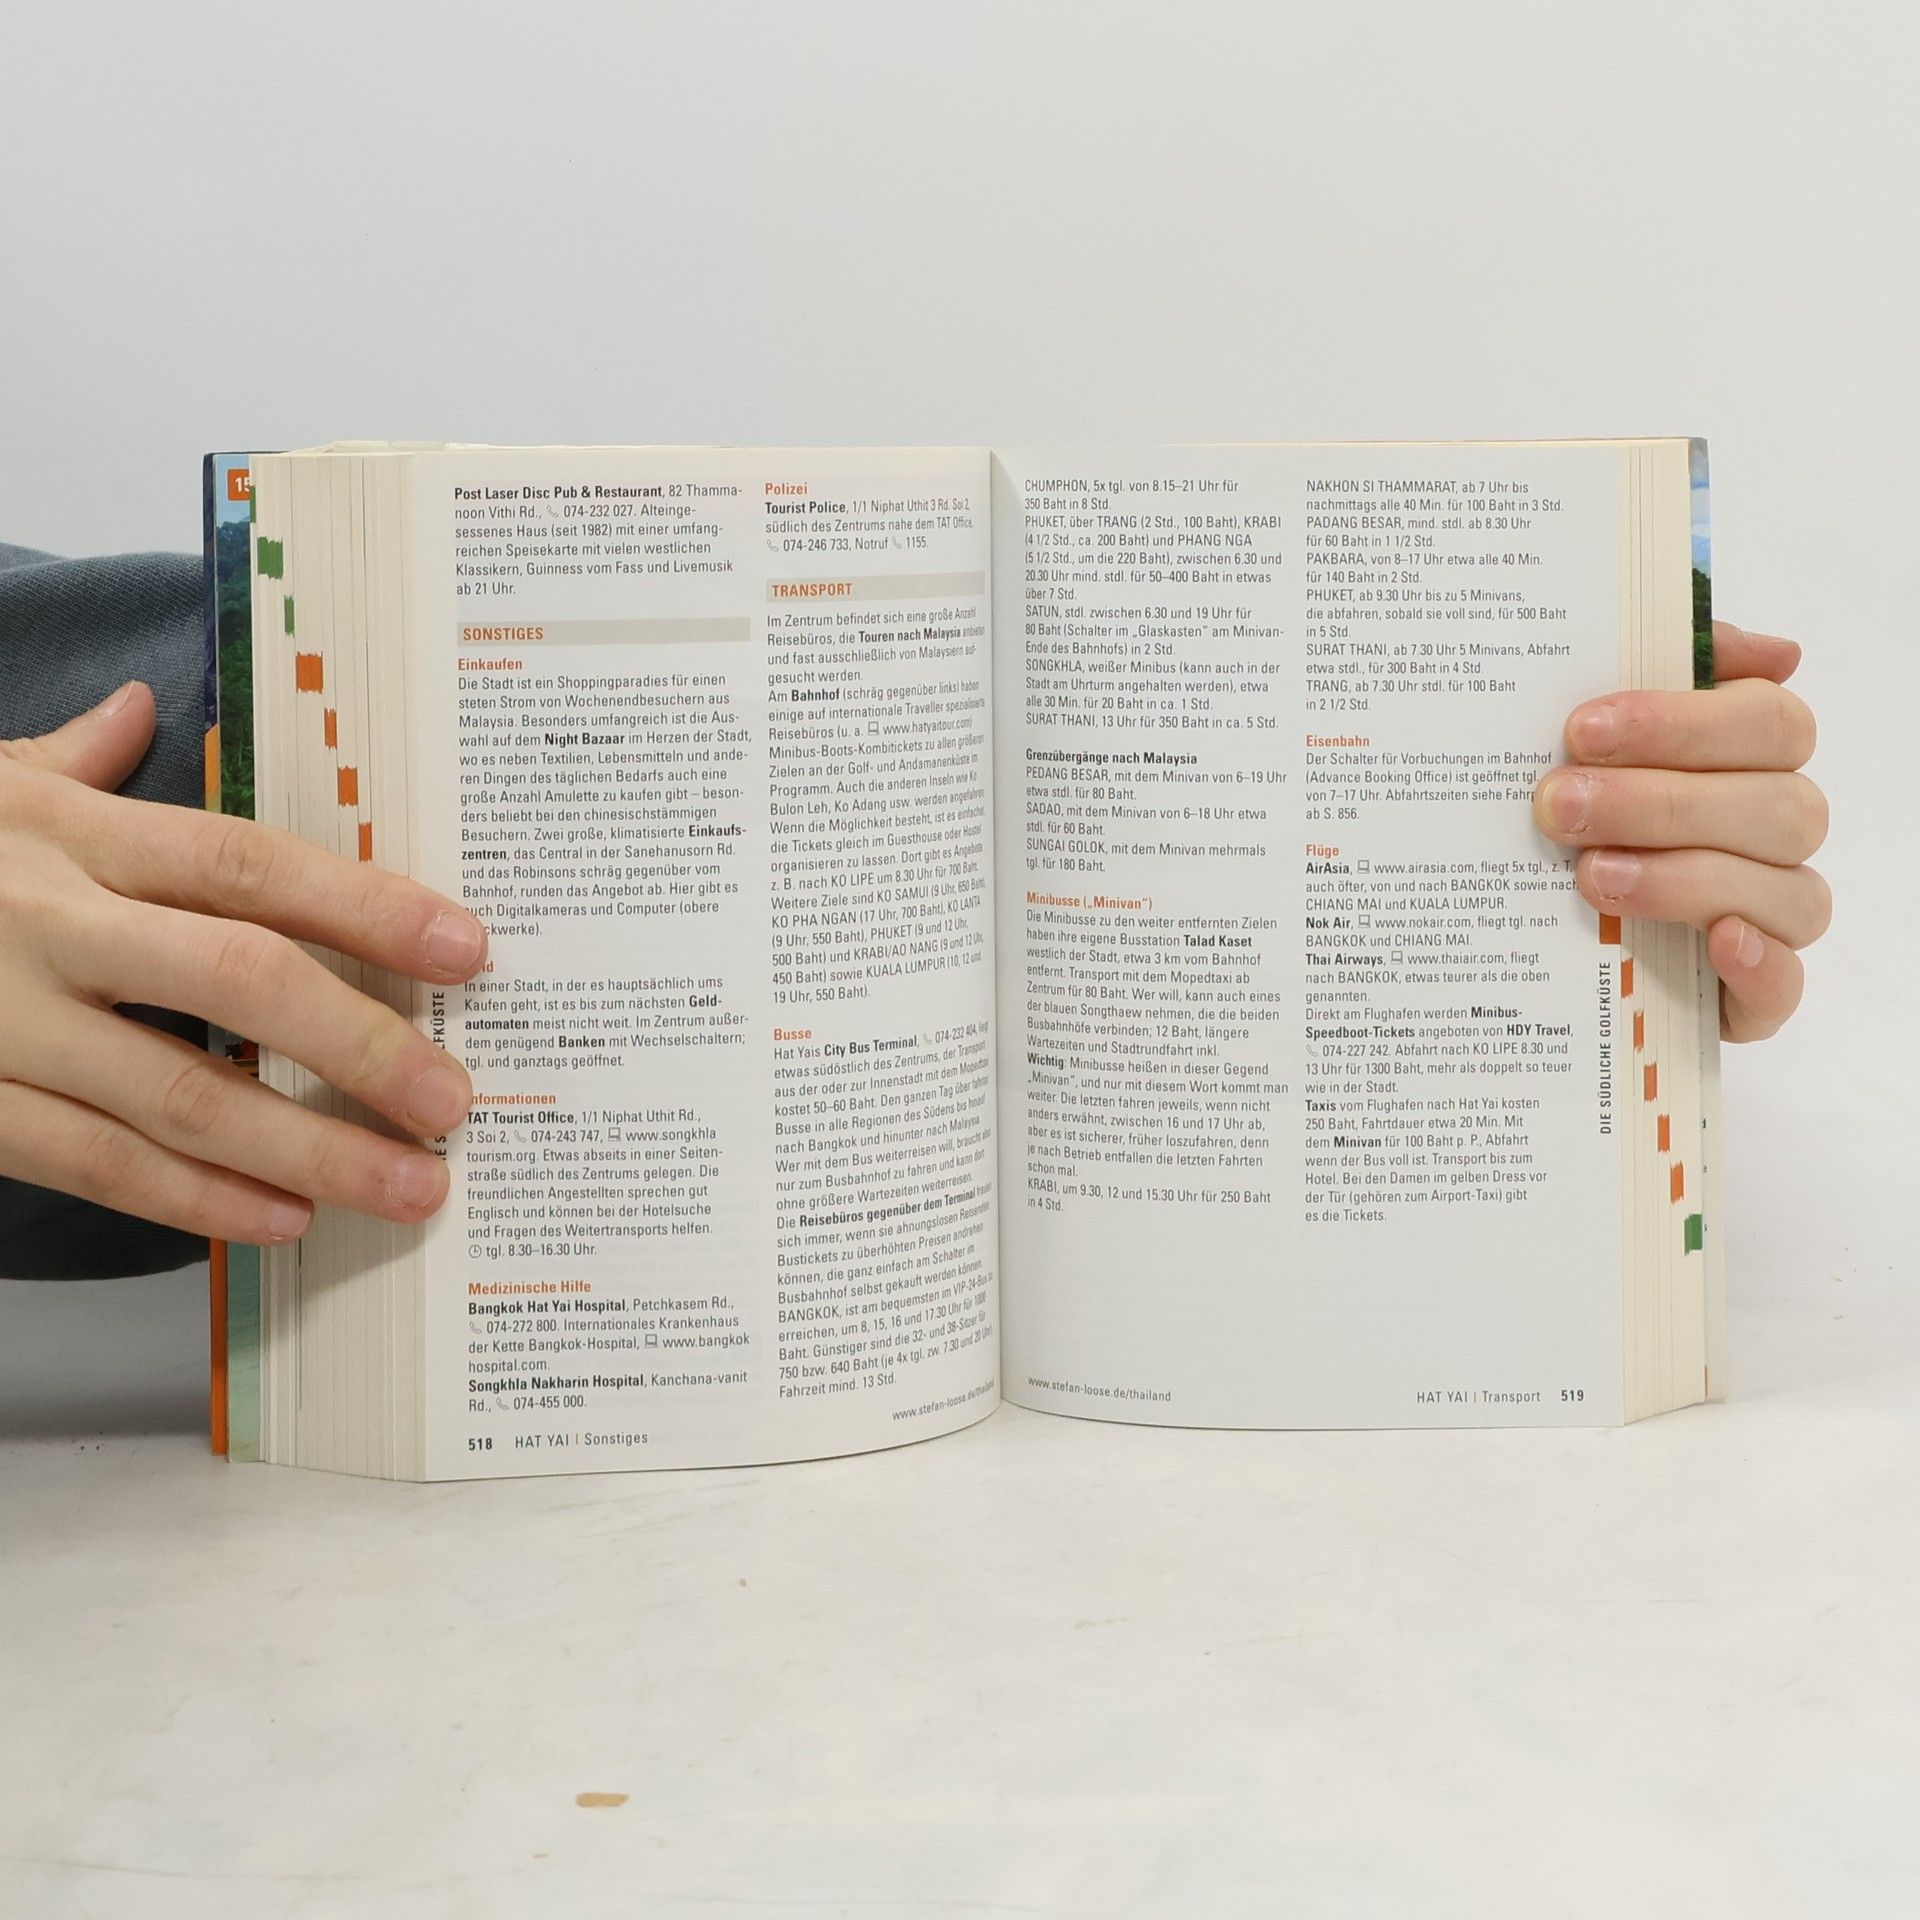 15
Post Laser Disc Pub & Restaurant, 82 Thamma-
noon Vithi Rd., 074-232 027. Alteinge-
sessenes Haus (seit 1982) mit einer umfang-
reichen Speisekarte mit vielen westlichen
Klassikern, Guinness vom Fass und Livemusik
ab 21 Uhr.
SONSTIGES
Einkaufen
Die Stadt ist ein Shoppingparadies für einen
steten Strom von Wochenendbesuchern aus
Malaysia. Besonders umfangreich ist die Aus-
wahl auf dem Night Bazaar im Herzen der Stadt,
wo es neben Textilien, Lebensmitteln und ande-
ren Dingen des täglichen Bedarfs auch eine
große Anzahl Amulette zu kaufen gibt – beson-
ders beliebt bei den chinesischstämmigen
Besuchern. Zwei große, klimatisierte Einkaufs-
zentren, das Central in der Sanehanusorn Rd.
und das Robinsons schräg gegenüber vom
Bahnhof, runden das Angebot ab. Hier gibt es
auch Digitalkameras und Computer (obere
ckwerke).
ld
In einer Stadt, in der es hauptsächlich ums
Kaufen geht, ist es bis zum nächsten Geld-
automaten meist nicht weit. Im Zentrum außer-
dem genügend Banken mit Wechselschaltern;
tgl. und ganztags geöffnet.
nformationen
TAT Tourist Office, 1/1 Niphat Uthit Rd.,
3 Soi 2, 074-243 747, www.songkhla
tourism.org. Etwas abseits in einer Seiten-
straße südlich des Zentrums gelegen. Die
freundlichen Angestellten sprechen gut
Englisch und können bei der Hotelsuche
und Fragen des Weitertransports helfen.
tgl. 8.30–16.30 Uhr.
Medizinische Hilfe
Bangkok Hat Yai Hospital, Petchkasem Rd.,
074-272 800. Internationales Krankenhaus
der Kette Bangkok-Hospital, www.bangkok
hospital.com.
Songkhla Nakharin Hospital, Kanchana-vanit
Rd., 074-455 000.
518 HAT YAI | Sonstiges
Polizei
Tourist Police, 1/1 Niphat Uthit 3 Rd. Soi 2
südlich des Zentrums nahe dem TAT Office,
074-246 733, Notruf 1155.
TRANSPORT
Im Zentrum befindet sich eine große Anzahl
Reisebüros, die Touren nach Malaysia anbieten
und fast ausschließlich von Malaysiern auf-
gesucht werden.
Am Bahnhof (schräg gegenüber links) haben
einige auf internationale Traveller spezialisierte
Reisebüros (u. a. www.hatyaitour.com)
Minibus-Boots-Kombitickets zu allen größeren
Zielen an der Golf- und Andamanenküste im
Programm. Auch die anderen Inseln wie Ko
Bulon Leh, Ko Adang usw. werden angefahren.
Wenn die Möglichkeit besteht, ist es einfacher,
die Tickets gleich im Guesthouse oder Hostel
organisieren zu lassen. Dort gibt es Angebote
z. B. nach KO LIPE um 8.30 Uhr für 700 Baht.
Weitere Ziele sind KO SAMUI (9 Uhr, 650 Baht),
KO PHA NGAN (17 Uhr, 700 Baht), KO LANTA
(9 Uhr, 550 Baht), PHUKET (9 und 12 Uhr,
500 Baht) und KRABI/AO NANG (9 und 12 Uhr,
450 Baht) sowie KUALA LUMPUR (10, 12 und
19 Uhr, 550 Baht).
Busse
Hat Yais City Bus Terminal, 074-232 404, liegt
etwas südöstlich des Zentrums, der Transport
aus der oder zur Innenstadt mit dem Mopedtaxi
kostet 50–60 Baht. Den ganzen Tag über fahren
Busse in alle Regionen des Südens bis hinauf
nach Bangkok und hinunter nach Malaysia.
Wer mit dem Bus weiterreisen will, braucht also
nur zum Busbahnhof zu fahren und kann dort
ohne größere Wartezeiten weiterreisen.
Die Reisebüros gegenüber dem Terminal freuen
sich immer, wenn sie ahnungslosen Reisenden
Bustickets zu überhöhten Preisen andrehen
können, die ganz einfach am Schalter im
Busbahnhof selbst gekauft werden können.
BANGKOK, ist am bequemsten im VIP-24-Bus zu
erreichen, um 8, 15, 16 und 17.30 Uhr für 1000
Baht. Günstiger sind die 32- und 38-Sitzer für
750 bzw. 640 Baht (je 4x tgl. zw. 7.30 und 20 Uhr)
Fahrzeit mind. 13 Std.
www.stefan-loose.de/thailand
CHUMPHON, 5x tgl. von 8.15–21 Uhr für
350 Baht in 8 Std.
PHUKET, über TRANG (2 Std., 100 Baht), KRABI
(4 1/2 Std., ca. 200 Baht) und PHANG NGA
(5 1/2 Std., um die 220 Baht), zwischen 6.30 und
20.30 Uhr mind. stdl. für 50–400 Baht in etwas
über 7 Std.
SATUN, stdl. zwischen 6.30 und 19 Uhr für
80 Baht (Schalter im „Glaskasten“ am Minivan-
Ende des Bahnhofs) in 2 Std.
SONGKHLA, weißer Minibus (kann auch in der
Stadt am Uhrturm angehalten werden), etwa
alle 30 Min. für 20 Baht in ca. 1 Std.
SURAT THANI, 13 Uhr für 350 Baht in ca. 5 Std.
Grenzübergänge nach Malaysia
PEDANG BESAR, mit dem Minivan von 6–19 Uhr
etwa stdl. für 80 Baht.
SADAO, mit dem Minivan von 6–18 Uhr etwa
stdl. für 60 Baht.
SUNGAI GOLOK, mit dem Minivan mehrmals
tgl. für 180 Baht.
Minibusse („Minivan“)
Die Minibusse zu den weiter entfernten Zielen
haben ihre eigene Busstation Talad Kaset
westlich der Stadt, etwa 3 km vom Bahnhof
entfernt. Transport mit dem Mopedtaxi ab
Zentrum für 80 Baht. Wer will, kann auch eines
der blauen Songthaew nehmen, die die beiden
Busbahnhöfe verbinden; 12 Baht, längere
Wartezeiten und Stadtrundfahrt inkl.
Wichtig: Minibusse heißen in dieser Gegend
„Minivan“, und nur mit diesem Wort kommt man
weiter. Die letzten fahren jeweils, wenn nicht
anders erwähnt, zwischen 16 und 17 Uhr ab,
aber es ist sicherer, früher loszufahren, denn
je nach Betrieb entfallen die letzten Fahrten
schon mal.
KRABI, um 9.30, 12 und 15.30 Uhr für 250 Baht
in 4 Std.
NAKHON SI THAMMARAT, ab 7 Uhr bis
nachmittags alle 40 Min. für 100 Baht in 3 Std.
PADANG BESAR, mind. stdl. ab 8.30 Uhr
für 60 Baht in 1 1/2 Std.
PAKBARA, von 8–17 Uhr etwa alle 40 Min.
für 140 Baht in 2 Std.
PHUKET, ab 9.30 Uhr bis zu 5 Minivans,
die abfahren, sobald sie voll sind, für 500 Baht
in 5 Std.
SURAT THANI, ab 7.30 Uhr 5 Minivans, Abfahrt
etwa stdl., für 300 Baht in 4 Std.
TRANG, ab 7.30 Uhr stdl. für 100 Baht
in 2 1/2 Std.
Eisenbahn
Der Schalter für Vorbuchungen im Bahnhof
(Advance Booking Office) ist geöffnet tgl.
von 7–17 Uhr. Abfahrtszeiten siehe Fahrp
ab S. 856.
Flüge
AirAsia, www.airasia.com, fliegt 5x tgl., z. T.
auch öfter, von und nach BANGKOK sowie nach
CHIANG MAI und KUALA LUMPUR.
Nok Air, www.nokair.com, fliegt tgl. nach
BANGKOK und CHIANG MAI.
Thai Airways, www.thaiair.com, fliegt
nach BANGKOK, etwas teurer als die oben
genannten.
Direkt am Flughafen werden Minibus-
Speedboot-Tickets angeboten von HDY Travel,
074-227 242. Abfahrt nach KO LIPE 8.30 und
13 Uhr für 1300 Baht, mehr als doppelt so teuer
wie in der Stadt.
Taxis vom Flughafen nach Hat Yai kosten
250 Baht, Fahrtdauer etwa 20 Min. Mit
dem Minivan für 100 Baht p. P., Abfahrt
wenn der Bus voll ist. Transport bis zum
Hotel. Bei den Damen im gelben Dress vor
der Tür (gehören zum Airport-Taxi) gibt
es die Tickets.
DIE SÜDLICHE GOLFKÜSTE
www.stefan-loose.de/thailand
HAT YAI | Transport 519